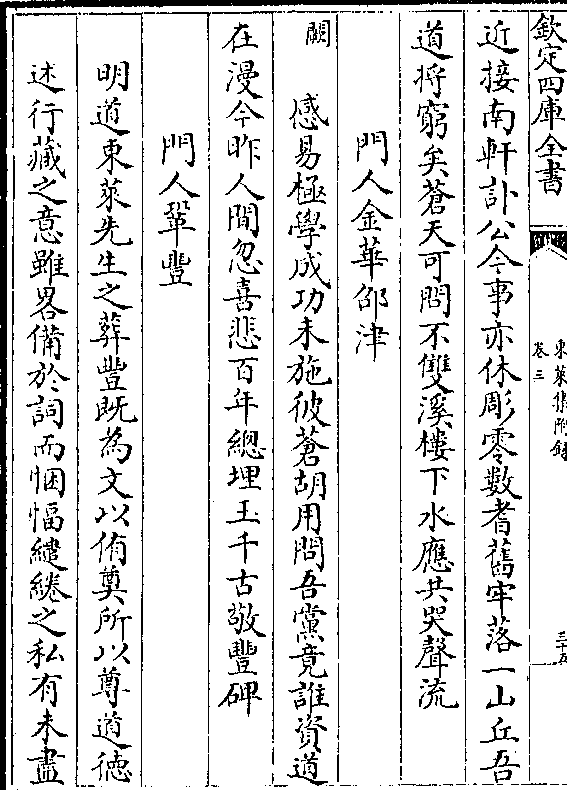 欽定四庫全書
東萊集附録
卷三
三十五
近接南軒訃公今事亦休彫零數耆舊牢落一山丘吾
道将窮矣蒼天可問不雙溪樓下水應共哭聲流
門人金華邵津
闕
感易極學成功未施彼蒼胡用問吾黨竟誰資道
在漫今昨人間忽喜悲百年總埋玉千古敬豐碑
門人鞏豐
明道東萊先生之葬豐既為文以侑奠所以尊道徳
述行藏之意雖畧備於詞而悃愊繾綣之私有未盡